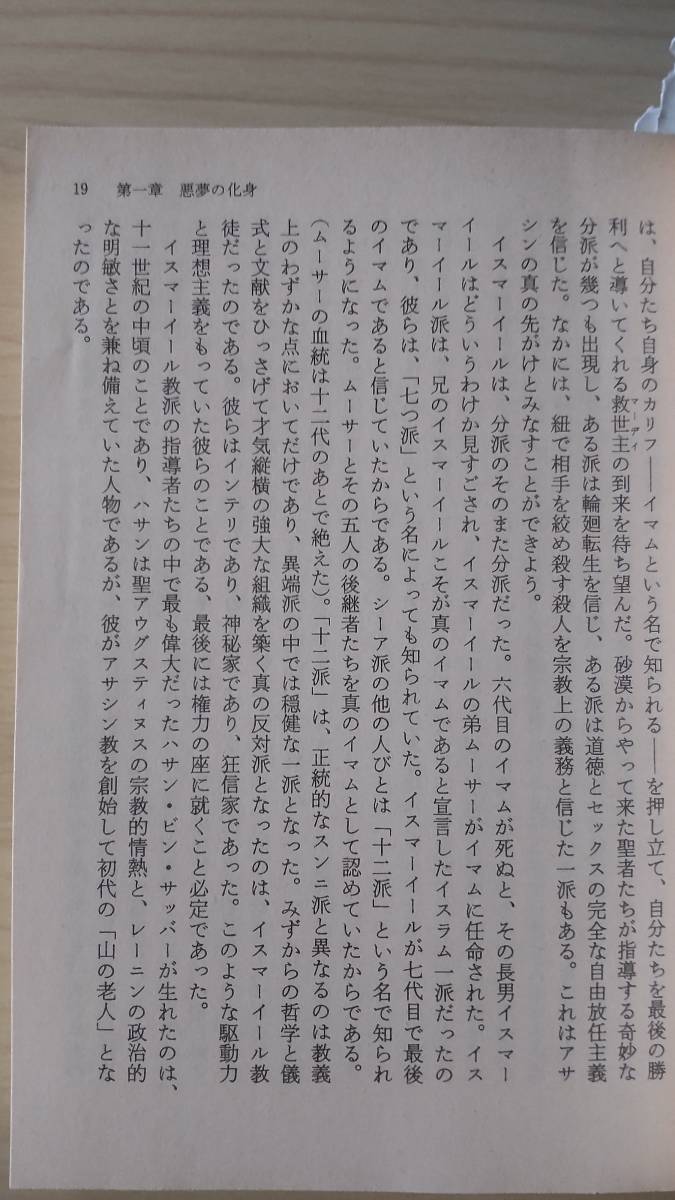 19 第一章 悪夢の化身
は、自分たち自身のカリフ――イマムという名で知られる――を押し立て、自分たちを最後の勝
利へと導いてくれる救世主の到来を待ち望んだ。砂漠からやって来た聖者たちが指導する奇妙な
マーディ
分派が幾つも出現し、ある派は輪廻転生を信じ、ある派は道徳とセックスの完全な自由放任主義
を信じた。なかには、紐で相手を絞め殺す殺人を宗教上の義務と信じた一派もある。これはアサ
シンの真の先がけとみなすことができよう。
イスマーイールは、分派のそのまた分派だった。六代目のイマムが死ぬと、その長男イスマー
イールはどういうわけか見すごされ、イスマーイールの弟ムーサーがイマムに任命された。イス
マーイール派は、兄のイスマーイールこそが真のイマムであると宣言したイスラム一派だったの
であり、彼らは、「七つ派」という名によっても知られていた。イスマーイールが七代目で最後
のイマムであると信じていたからである。シーア派の他の人びとは「十二派」という名で知られ
るようになった。ムーサーとその五人の後継者たちを真のイマムとして認めていたからである。
（ムーサーの血統は十二代のあとで絶えた）。「十二派」は、正統的なスンニ派と異なるのは教義
上のわずかな点においてだけであり、異端派の中では穏健な一派となった。みずからの哲学と儀
式と文献をひっさげて才気縦横の強大な組織を築く真の反対派となったのは、イスマーイール教
徒だったのである。彼らはインテリであり、神秘家であり、狂信家であった。このような駆動力
と理想主義をもっていた彼らのことである、最後には権力の座に就くこと必定であった。
イスマーイール教派の指導者たちの中で最も偉大だったハサン・ビン・サッバーが生れたのは、
十一世紀の中頃のことであり、ハサンは聖アウグスティヌスの宗教的情熱と、レーニンの政治的
な明敏さとを兼ね備えていた人物であるが、彼がアサシン教を創始して初代の「山の老人」とな
ったのである。